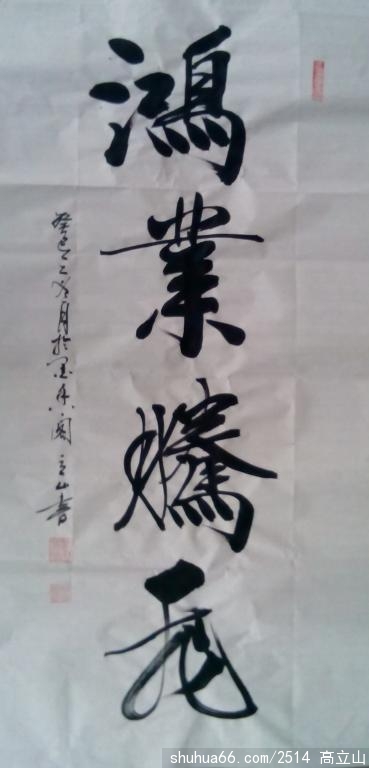 鴻業騰飛
癸巳之冬月於墨香閣立山書
shuhua66.com/2514 高立山